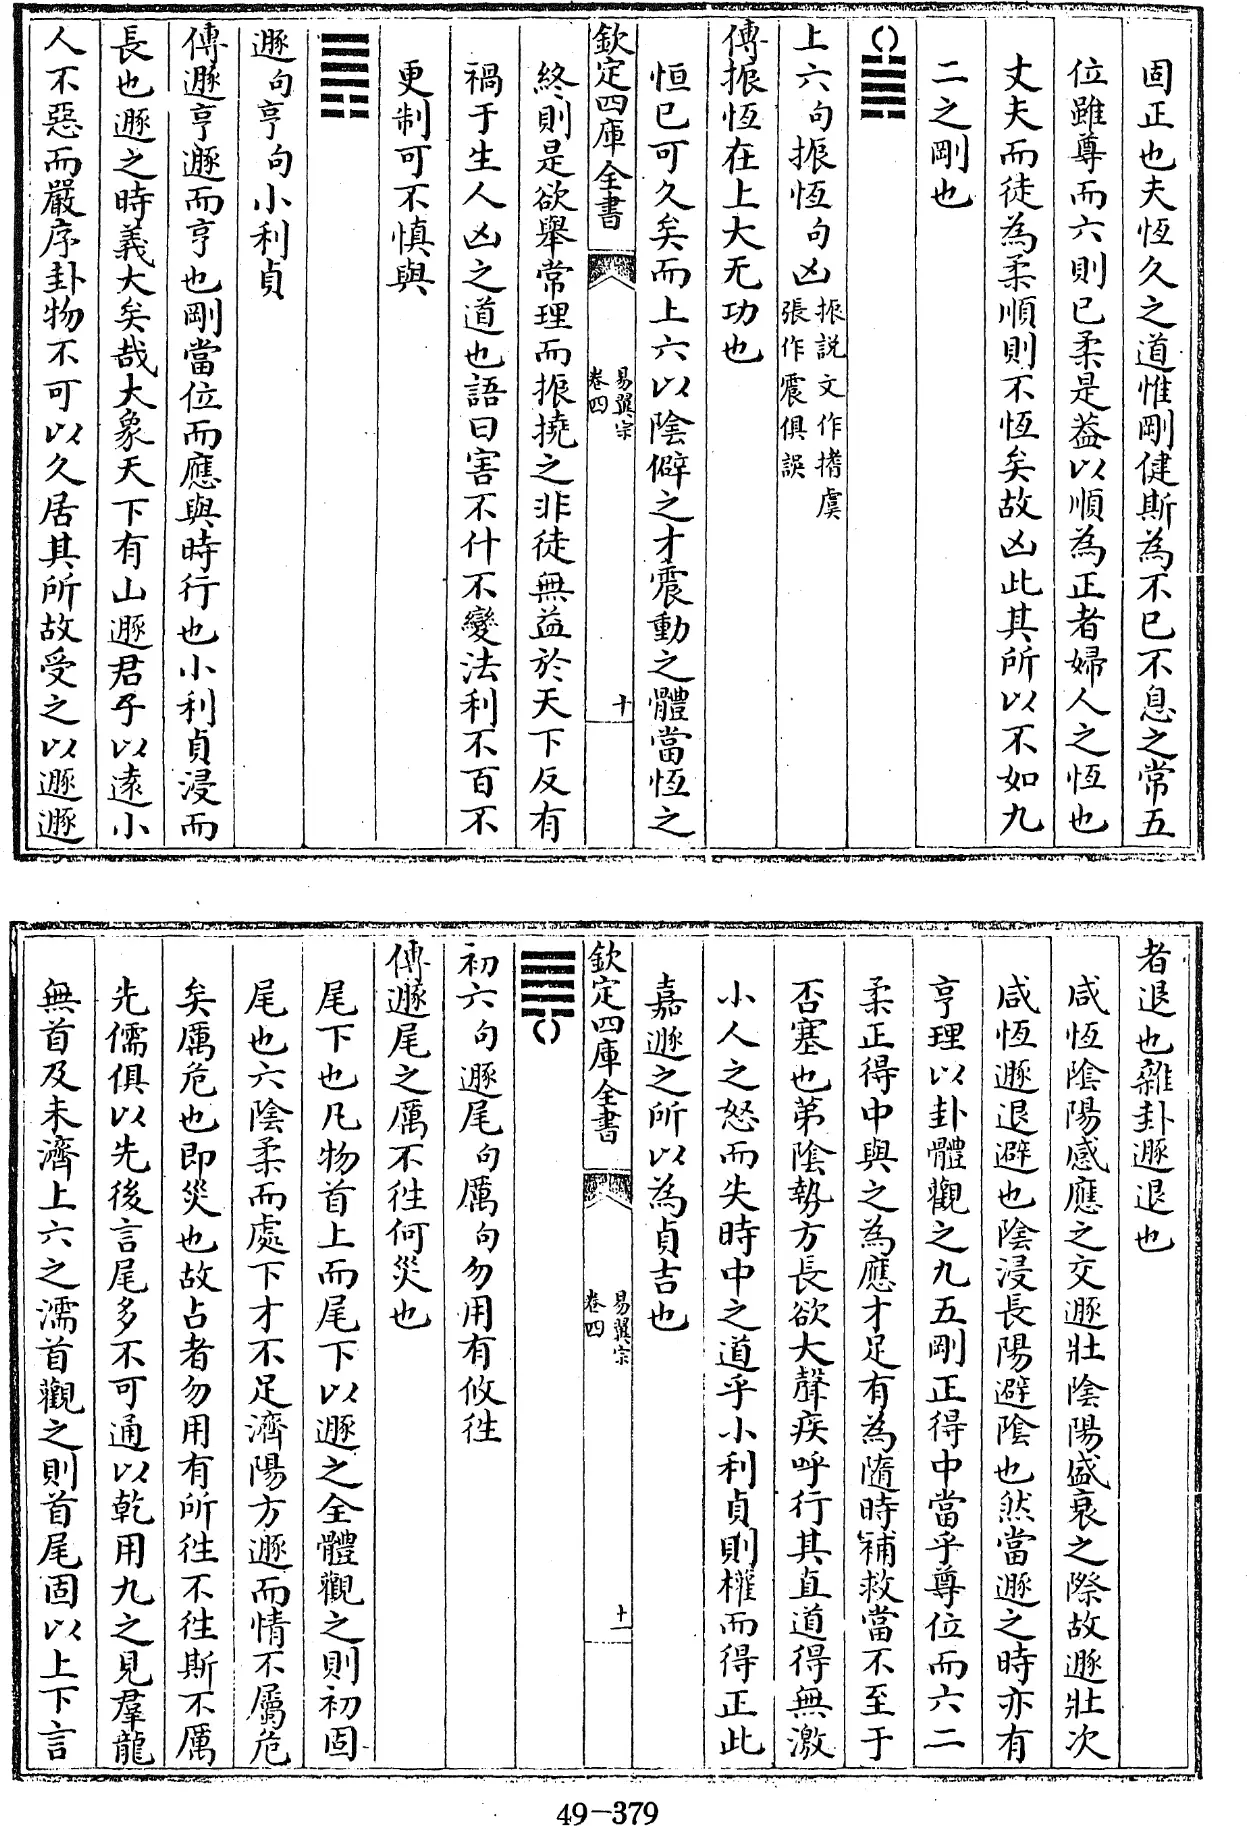 固正也夫恆久之道惟剛健斯為不已不息之常五
位雖尊而六則已柔是葢以順為正者婦人之恆也
丈夫而徒為柔順則不恆矣故凶此其所以不如九
二之剛也
上六句振恆句凶振說文作榰虞
張作震俱誤
傳振恆在上大无功也
恒已可久矣而上六以陰僻之才震動之體當恆之
欽定四庫全書
易翼宗
卷四
十
終則是欲舉常理而振撓之非徒無益於天下反有
禍于生人凶之道也語曰害不什不變法利不百不
更制可不慎與
遯句亨句小利貞
傳遯亨遯而亨也剛當位而應與時行也小利貞浸而
長也遯之時義大矣哉大象天下有山遯君子以遠小
人不惡而嚴序卦物不可以久居其所故受之以遯遯
者退也雜卦遯退也
咸恆陰陽感應之交遯壯陰陽盛衰之際故遯壯次
咸恆遯退避也陰浸長陽避陰也然當遯之時亦有
亨理以卦體觀之九五剛正得中當乎尊位而六二
柔正得中與之為應才足有為隨時補救當不至于
否塞也第陰勢方長欲大聲疾呼行其直道得無激
小人之怒而失時中之道乎小利貞則權而得正此
嘉遯之所以為貞吉也
欽定四庫全書
易翼宗
卷四
十一
初六句遯尾句厲句勿用有攸往
傳遯尾之厲不往何災也
尾下也凡物首上而尾下以遯之全體觀之則初固
尾也六陰柔而處下才不足濟陽方遯而情不屬危
矣厲危也即災也故占者勿用有所往不往斯不厲
先儒俱以先後言尾多不可通以乾用九之見羣龍
無首及未濟上六之濡首觀之則首尾固以上下言
49-379